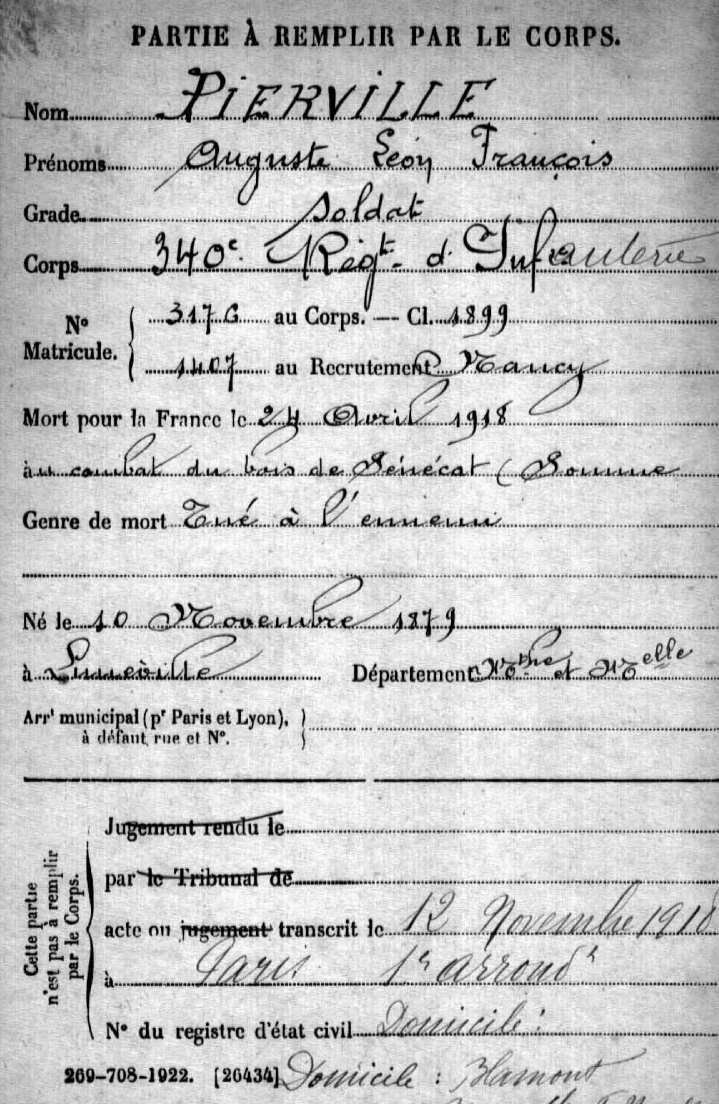 PARTIE À REMPLIR PAR LE CORPS.
Nom PIERVILLE
Prénoms Auguste Léon François
Grade Soldat
Corps 340e. Régt. d'Infanterie
No Matricule. 3176 au Corps. — Cl. 1899
1407 au Recrutement Nancy
Mort pour la France le 24 Avril 1918
à au combat du bois de Sénécat (Somme
Genre de mort Tué à l'ennemi
Né le 10 Novembre 1879
à Lunéville Département Mthe et Melle
Arrt municipal (pr Paris et Lyon), à défaut rue et No.
Cette partie n'est pas à remplir par le Corps.
Jugement rendu le
par le Tribunal de
acte ou jugement transcrit le 12 Novembre 1918
à Paris 1r arrondt
No du registre d'état civil Domicile :
269-708-1922. [26434] Domicile : Blamont